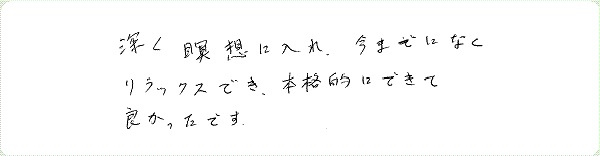 深く瞑想に入れ、今までになく
リラックスでき、本格的にできて
良かったです。